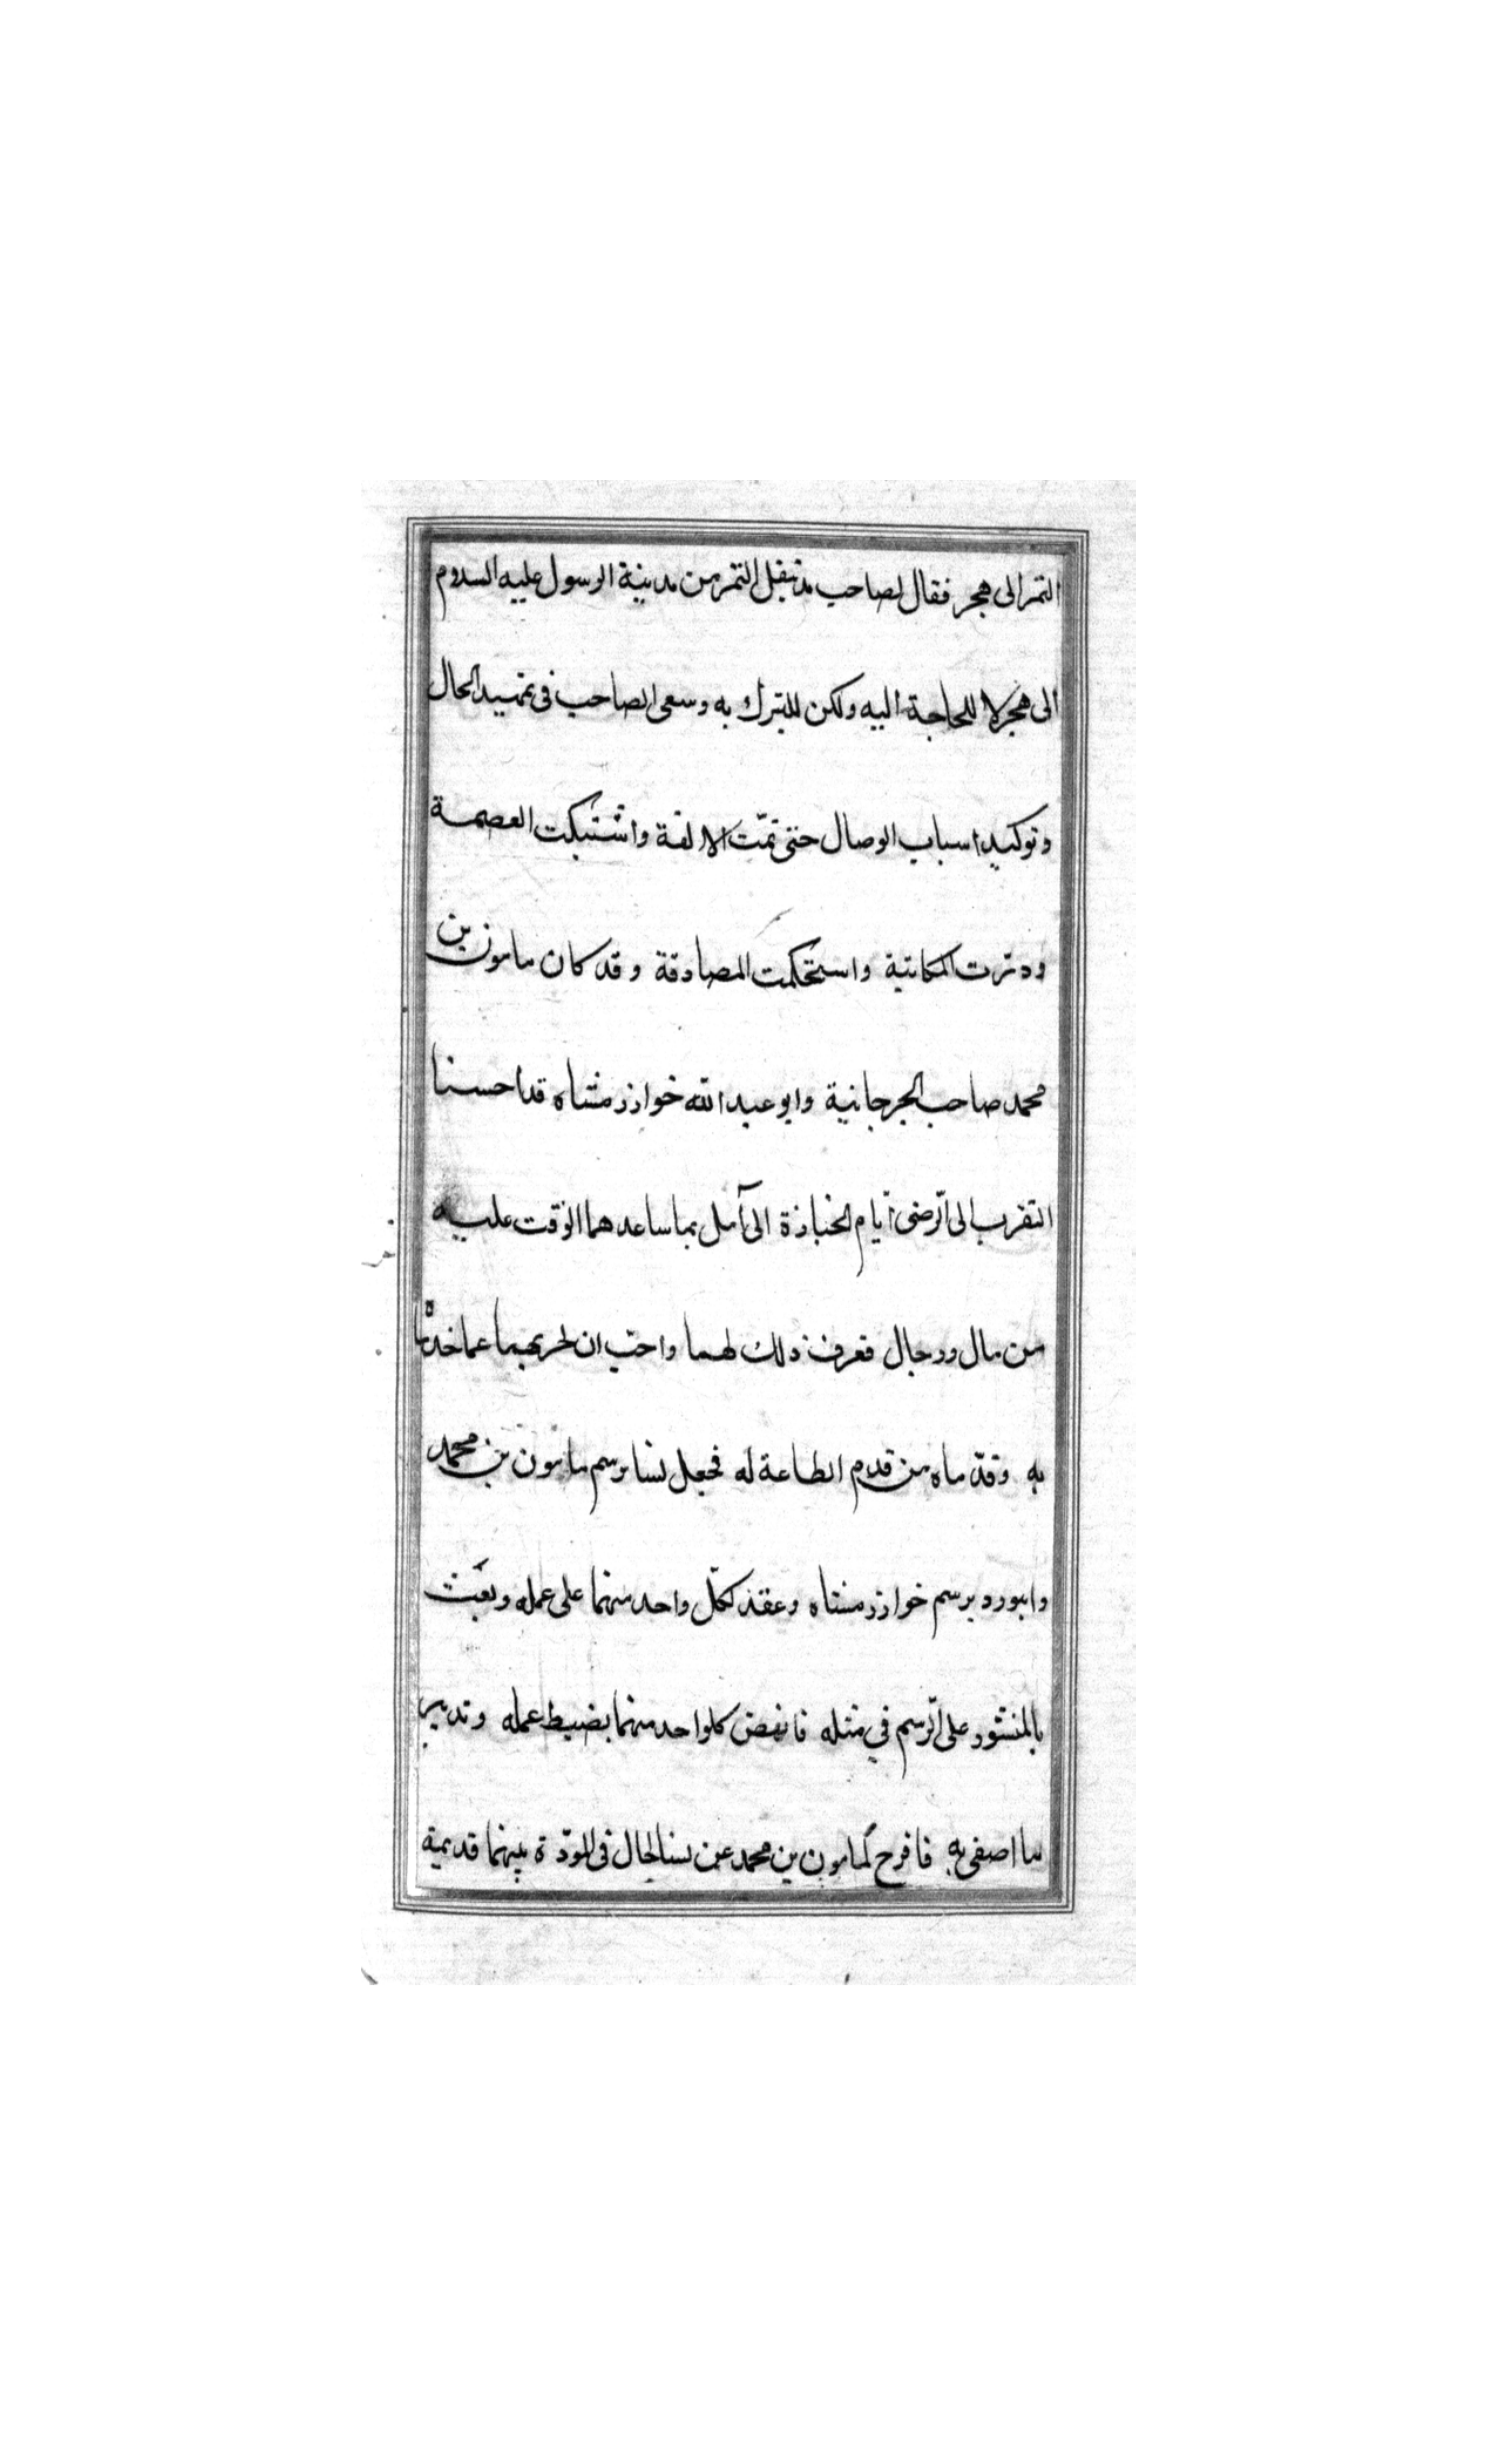 التمر الى هجر فقال لصاحب قد ينقل التمر من مدينة الرسول عليه السلام
الى هجر لا للحاجة اليه ولكن للتبرك به وسعى الصاحب فى تمهيد الحال
وتوكيد اسباب الوصال حتى تمّت الالفة واشتبكت العصمة
ودترت المكاتبة واستحكمت المصادقة وقد كان مامون بن
محمد صاحب الجرجانية وابو عبد الله خوارزمشاه قد احسنا
التقرب الى الرّضى ايّام انحيازه الى آمل بما ساعدهما الوقت عليه
من مال ورجال فعرف ذلك لهما واحبّ ان عما خدماه
به وقدّماه من قدم الطاعة له فجعل نسا برسم مامون بن محمد
وابيورد برسم خوارزمشاه وعقد لكلّ واحد منهما على عمله وبعث
بالمنشور على الرّسم في مثله فانهض كل واحد منهما بضبط عمله وتدبير
ما اصفى به فافرج لمامون بن محمد عن نسا لحال فى المودّة بينهما قديمة